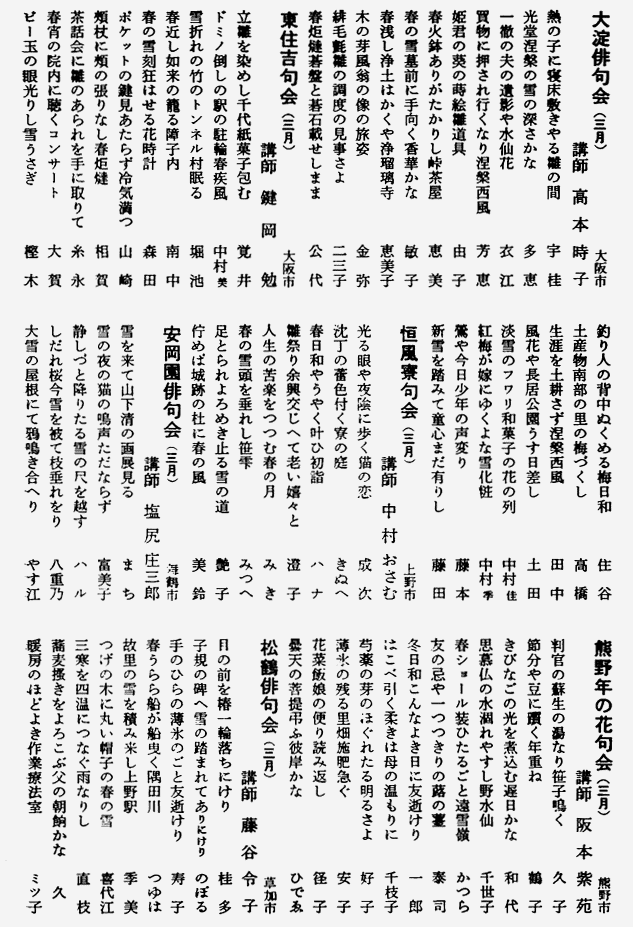 大淀俳句会(三月)
大阪市
講師 高本時子
熱の子に寝床敷きやる雛の間 宇桂
光堂涅槃の雪の深さかな 多恵
一徹の夫の遺影や水仙花 衣江
買物に押され行くなり涅槃西風 芳恵
姫君の葵の蒔絵雛道具 由子
春火鉢ありがたかりし峠茶屋 恵美
春の雪墓前に手向く香華かな 敏子
春浅し浄土はかくや浄瑠璃寺 恵美子
木の芽風翁の像の旅姿 金弥
緋毛氈雛の調度の見事さよ 二三子
春炬燵碁盤と碁石載せしまま 公代
東住吉句会(三月)
大阪市
講師 鍵岡勉
立雛を染めし千代紙菓子包む 覚井
ドミノ倒しの駅の駐輪春疾風 中村美
雪折れの竹のトンネル村眠る 堀池
春近し如来の籠る障子内 南中
春の雪刻狂はせる花時計 森田
ポケットの鍵見あたらず冷気満つ 山崎
頬杖に頬の張りなし春炬燵 相賀
茶話会に雛のあられを手に取りて 糸永
春宵の院内に聴くコンサート 大賀
ビー玉の眼光りし雪うさぎ 樫木
釣り人の背中ぬくめる梅日和 住谷
土産物南部の里の梅づくし 高橋
生涯を土耕さず涅槃西風 田中
風花や長居公園うす日差し 土田
淡雪のフワリ和菓子の花の列 中村佳
紅梅が嫁にゆくよな雪化粧 中村季
鶯や今日少年の声変り 藤本
新雪を踏みて童心まだ有りし 藤田
恒風寮句会(三月)
上野市
講師 中村おさむ
光る眼や夜陰に歩く猫の恋 成次
沈丁の蕾色付く寮の庭 きぬへ
春日和やうやく叶ひ初詣 ハナ
雛祭り余興交じへて老い嬉々と 澄子
人生の苦楽をつつむ春の月 みき
春の雪頭を垂れし笹雫 みつへ
足とられよろめき止る雪の道 艶子
佇めば城跡の杜に春の風 美鈴
安岡園俳句会(三月)
舞鶴市
講師 塩尻庄三郎
雪を来て山下清の画展見る まち
雪の夜の猫の鳴声ただならず 富美子
静しづと降りたる雪の尺を越す ハル
しだれ桜今雪を被て枝垂れをり 八重乃
大雪の屋根にて鴉鳴き合へり やす江
熊野年の花句会(三月)
熊野市
講師 阪本紫苑
判官の蘇生の湯なり笹子鳴く 久子
節分や豆に躓く年重ね 鶴子
きびなごの光を煮込む遅日かな 和代
思慕仏の水涸れやすし野水仙 千世子
春ショール装ひたるごと遠雪嶺 かつら
友の忌や一つつきりの蕗の薹 泰司
冬日和こんなよき日に友逝けり 一郎
はこべ引く柔きは母の温もりに 千枝子
芍薬の芽のほぐれたる明るさよ 好子
薄氷の残る里畑施肥急ぐ 安子
花菜飯娘の便り読み返し 径子
曇天の菩提弔ふ彼岸かな ひでゑ
松鶴俳句会(三月)
草加市
講師 藤谷令子
目の前を椿一輪落ちにけり 桂多
子規の碑へ雪の踏まれてありにけり のぼる
手のひらの薄氷のごと友逝けり 寿子
春うらら船が船曳く隅田川 つゆは
故里の雪を積み来し上野駅 季美
つげの木に丸い帽子の春の雪 喜代江
三寒を四温につなぐ雨なりし 直枝
蕎麦搔きをよろこぶ父の朝餉かな 久
暖房のほどよき作業療法室 ミツ子